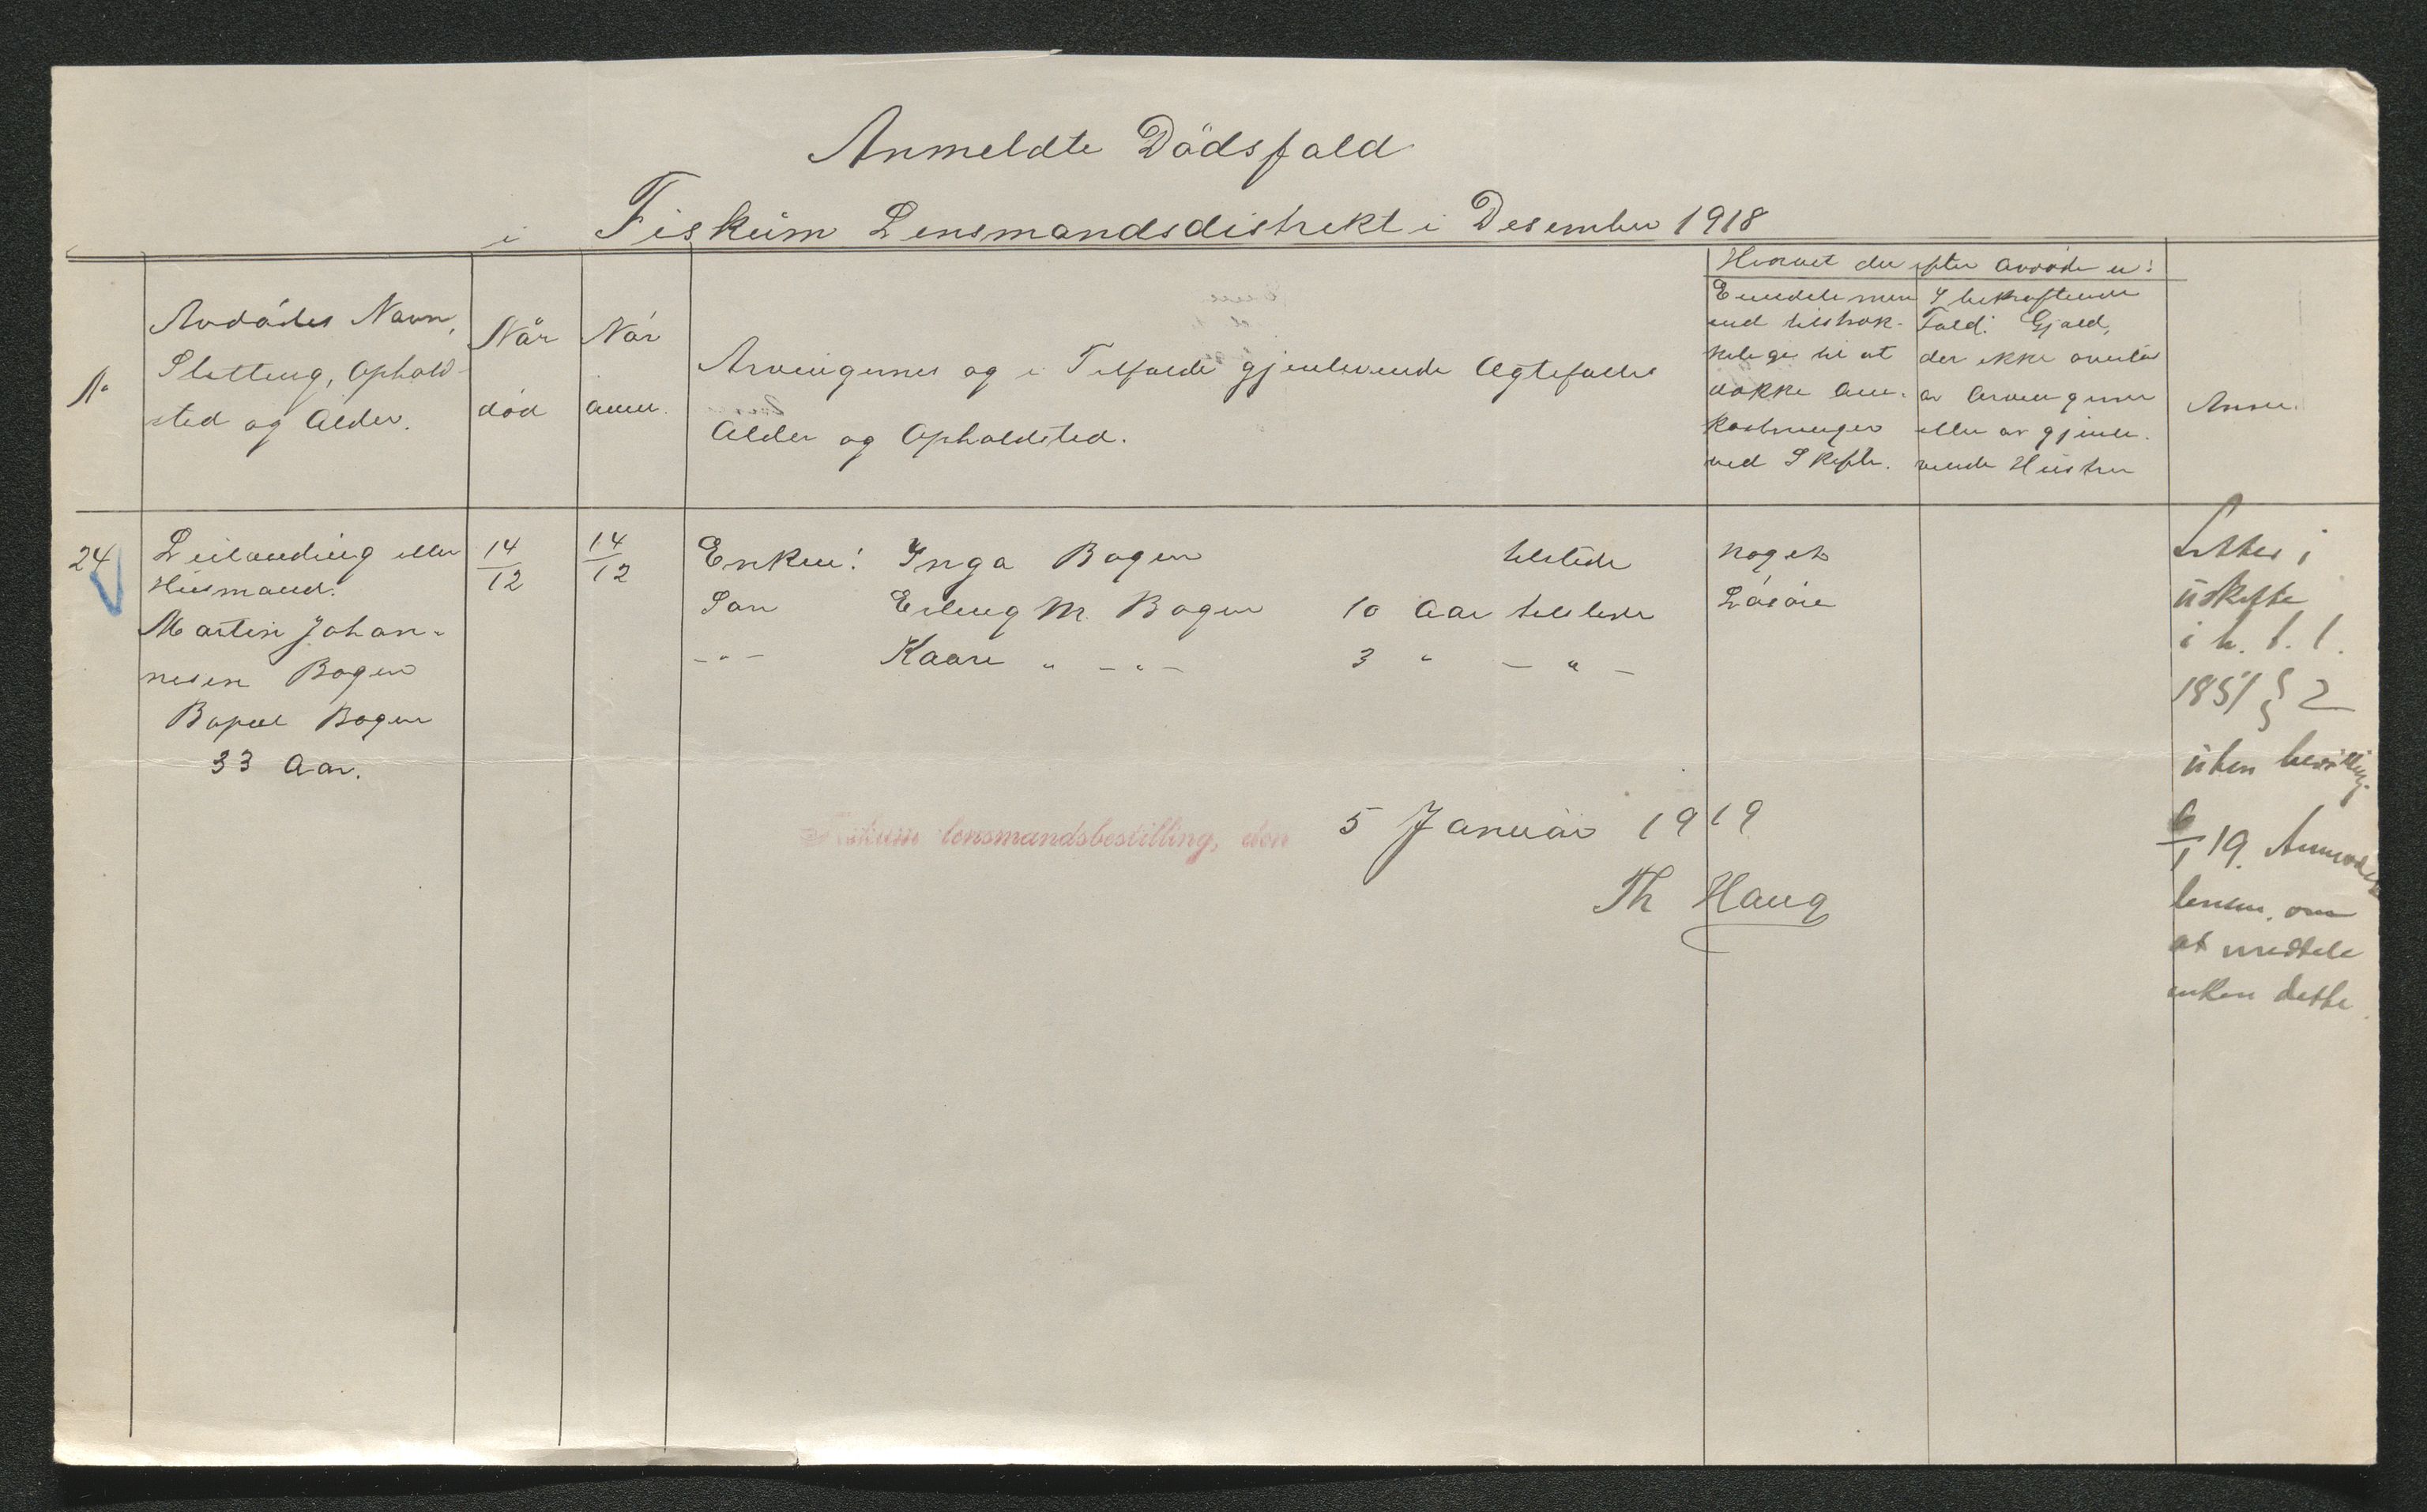 Anmeldte Dödsfald
i Fiskum Lensmandsdistrekt i Desember 1918
No
Avdødes Navn,
Stilling, Ophold-
sted og Alder.
Når
død
Når
anm.
Arvingernes og i Tilfælde gjenlevende Ægtefælles
Alder og Opholdsted.
Hvorvet der efter avdøde er:
Eiendele men
end tilstræk-
kelige til at
dække om-
kostninger
ved Skifte.
I bekræftende
Fald: Gjæld,
der ikke overtas
av Arvingerne
eller av gjenle-
vende Hustru
Anm.
24
Leilænding eller
Husmand:
Martin Johan-
nesen Bagen
Bopæl Bogen
33 Aar.
14/12
14/12
Enken: Inga Bogen tilstede
Søn Erling M. Bogen 10 Aar tilstede
-"- Kaare " -"- 3 " - " -
noget
Løsøre
Sitter i
uskifte
i h. t. l.
1851 § 2
uten bevilling.
6/1 19. Anmodet
lensm. om
at meddele
enken dette.
Fiskum lensmandsbestilling, den 5 Januar 1919
Th Haug